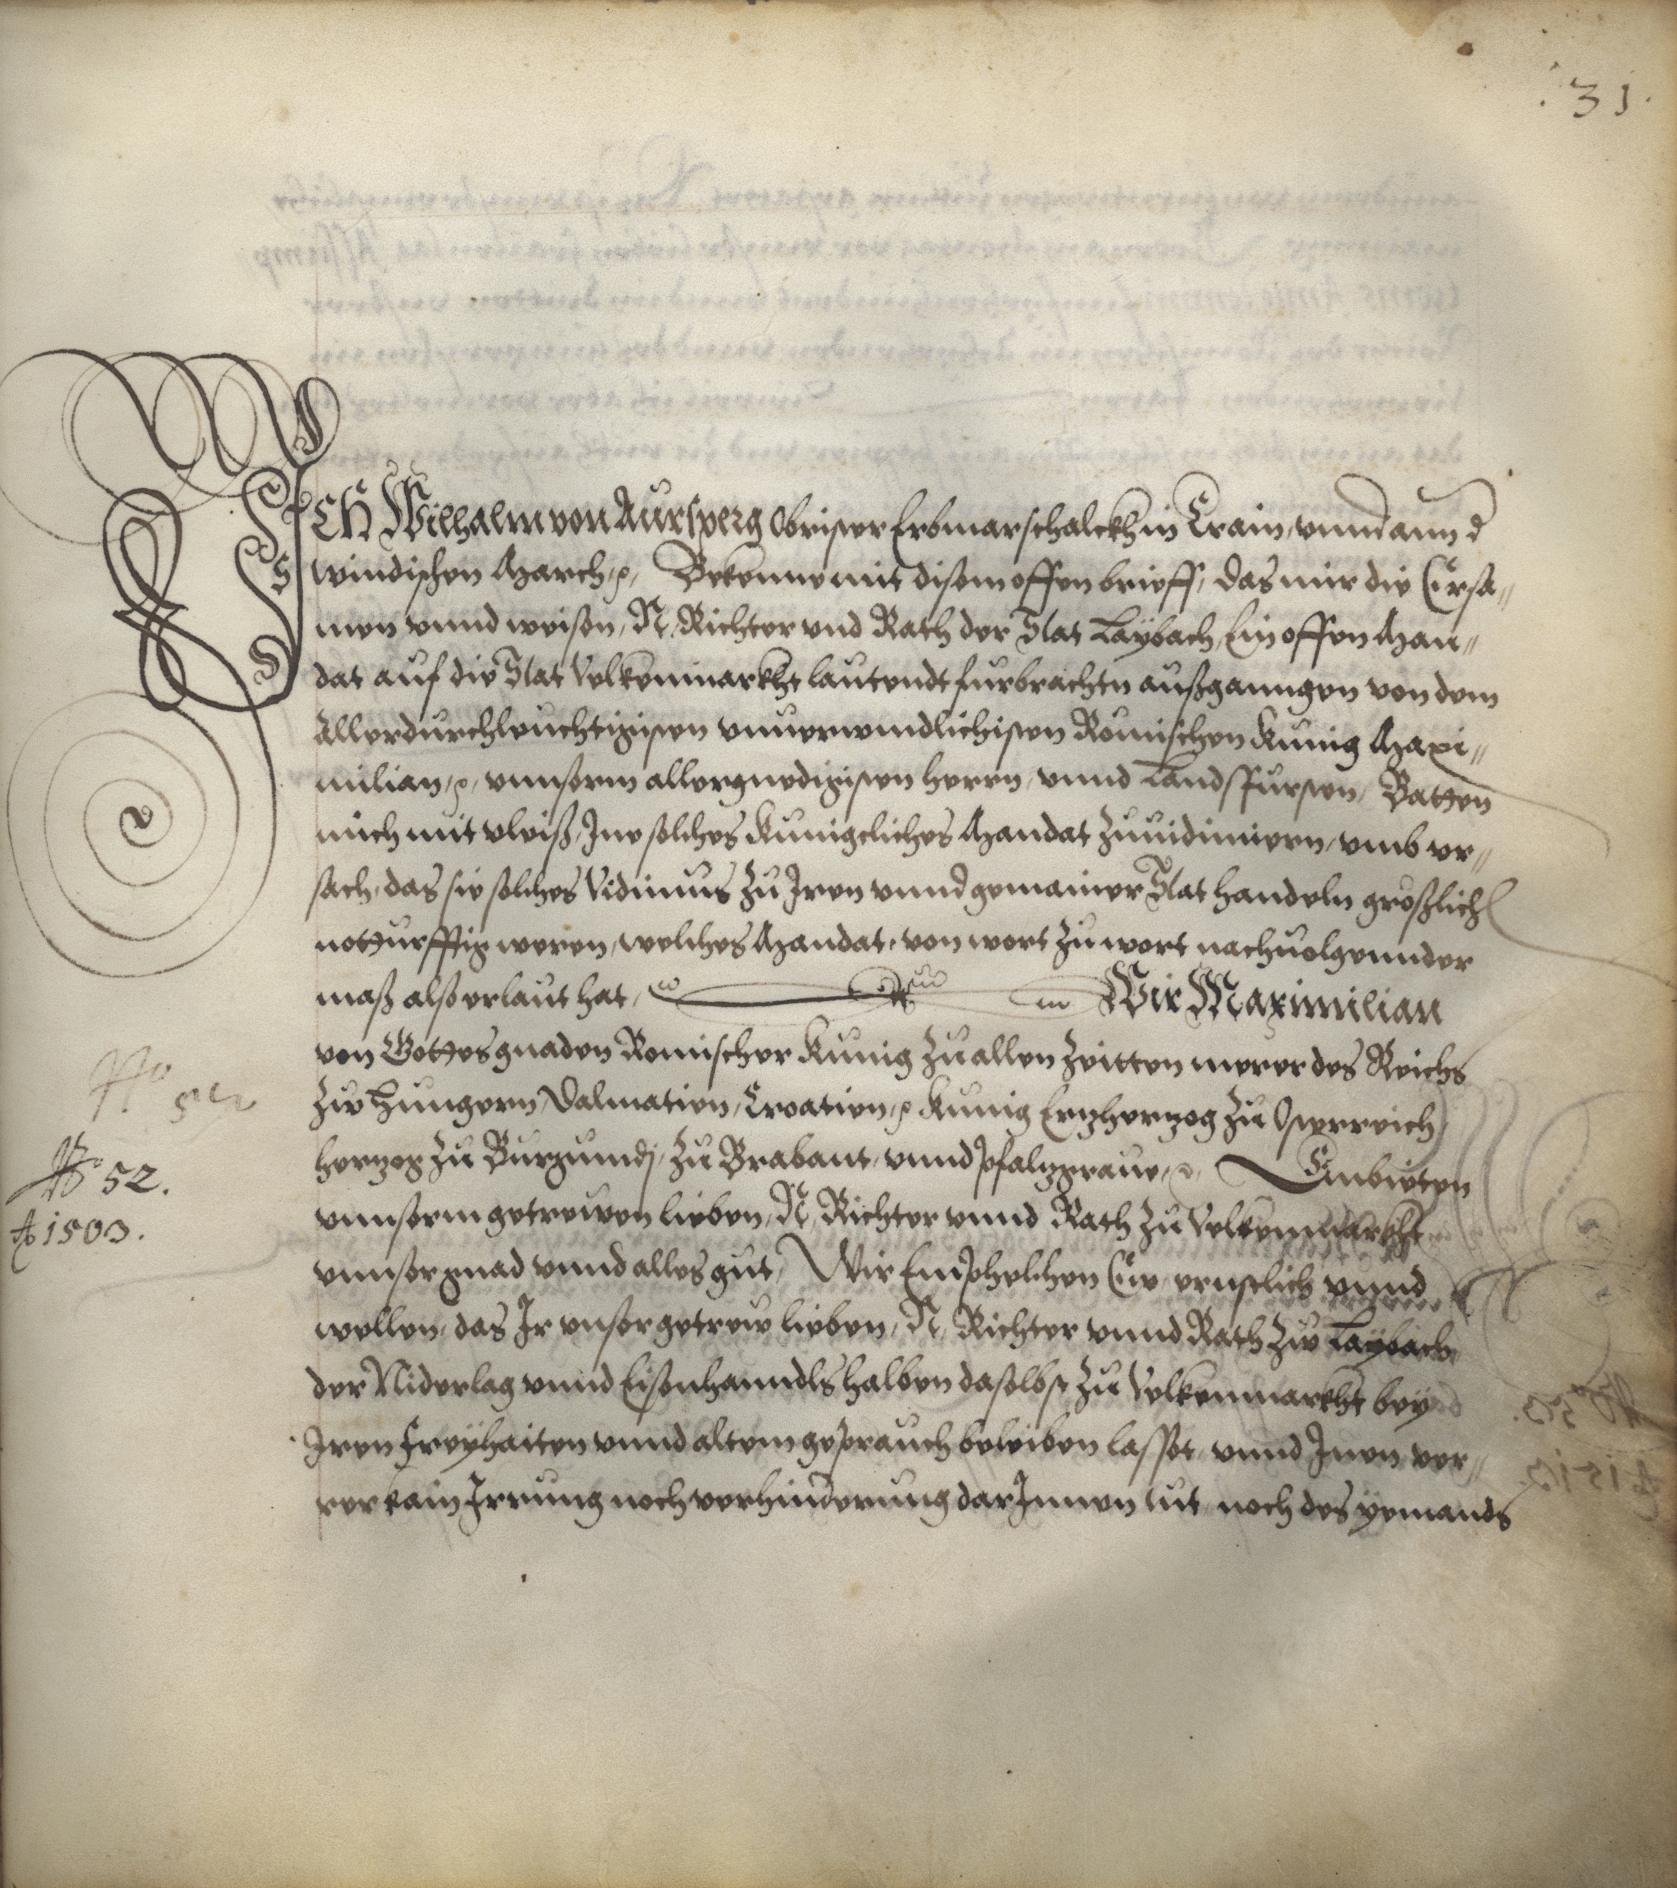 31.
ICH Wilhalm von Aursperg Obrister Erbmarschalckh in Crain, vnnd ann d
windischen March, ꝛc, Bekenne mit disem offen brieff, das mir die Ersa„
men vnnd weisen, N, Richter vnd Rath der Stat Laÿbach, Ein offen Man„
dat auf die Stat Volkenmarkht lautendt furbrachtn außganngen von dem
Allerdurchleuchtigisten vnuerwindlichisten Römischen Kunig Maxi„
milian, ꝛc, vnnserm allergnedigisten herrn, vnnd Landsfursten, Batten
mich mit vleiß, Jne solches Kunigcliches Mandat Zuuidimiern, vmb vr„
sach, das sie solches Vidimus Zu Jren vnnd gemainer Stat handeln großlich
notturfftig weren, welches Mandat, von wort Zu wort nachuolgennder
maß alß erlaut hat, Wir Maximilian
von Gottes gnaden Romischer Kunig Zu allen Zeitten merer des Reichs
Zw Hungern, Dalmatien, Croatien, ꝛc Kunig Ertzhertzog Zu Osterreich
hertzog Zu Burgundj, Zu Brabant, vnnd Pfaltzgraue, ꝛc, Embieten
vnnserm getrewen lieben, N, Richter vnnd Rath Zu Volkenmarkht
vnnser gnad vnnd alles gut, Wir Emphelhen Euw ernstlich vnnd
wellen, das Jr vnser getrew lieben, N, Richter vnnd Rath Zw Laÿbach
der Niderlag vnnd Eisenhanndls halben daselbst Zu Volkenmarkht beÿ
Jren Freÿhaiten vnnd altem geprauch beleiben lasset, vnnd Jnen ver„
rer kain Jrrung noch verhinderung darJnnen tut, noch des ÿemands
No 52.
A 1503.